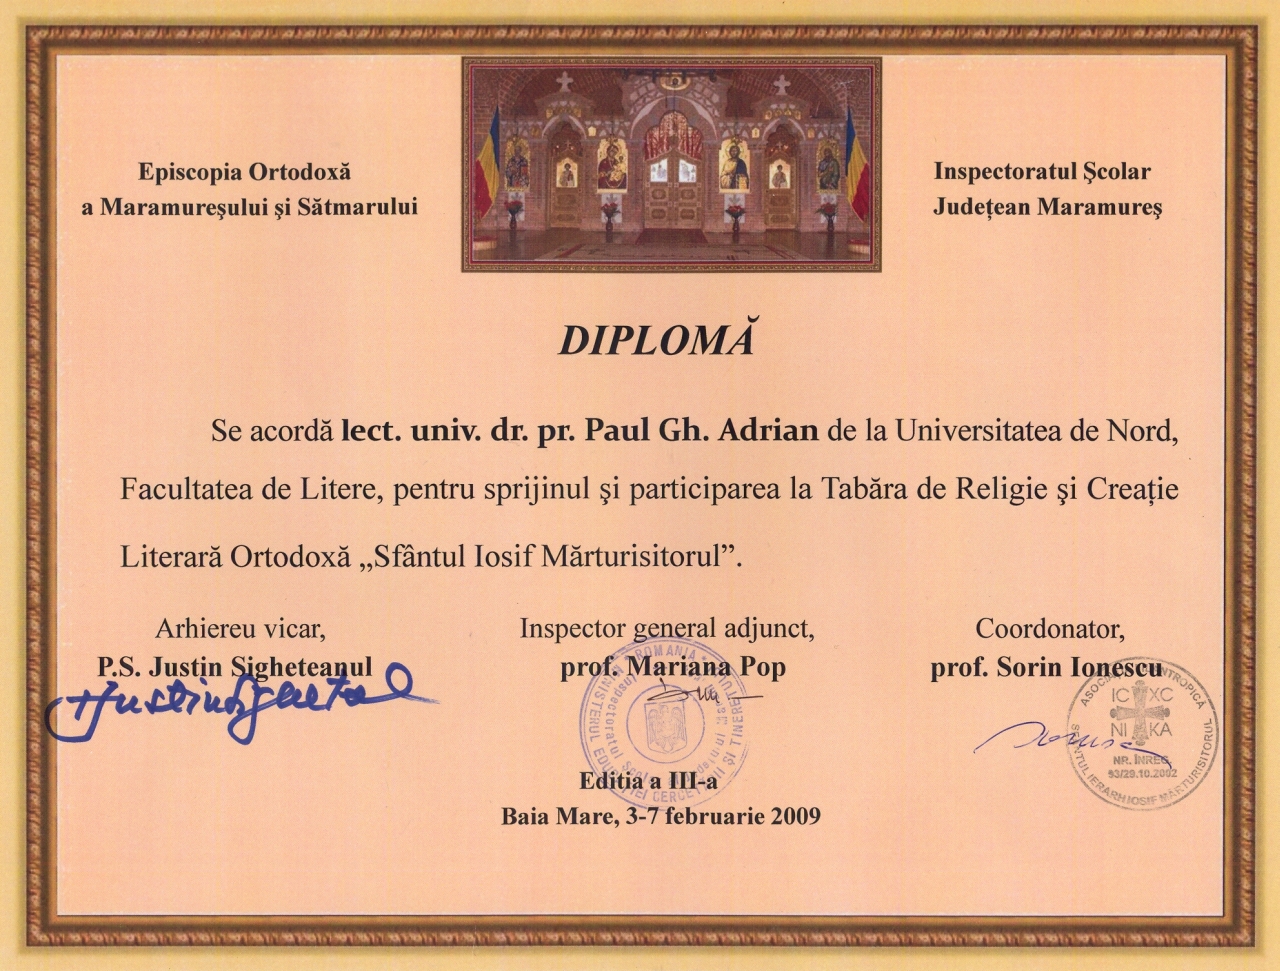 Episcopia Ortodoxă
a Maramureşului şi Sătmarului
Inspectoratul Şcolar
Județean Maramureş
DIPLOMĂ
Se acordă lect. univ. dr. pr. Paul Gh. Adrian de la Universitatea de Nord,
Facultatea de Litere, pentru sprijinul şi participarea la Tabăra de Religie şi Creație
Literară Ortodoxă „Sfântul Iosif Mărturisitorul”.
Arhiereu vicar,
P.S. Justin Sigheteanul
Justin Sigheteanul
Inspector general adjunct,
prof. Mariana Pop
ROMANIA
MINISTERUL EDUCAȚIEI CERCETĂRII ȘI TINERETULUI
Inspectoratul Școlar
Coordonator,
prof. Sorin Ionescu
IC XC
NI KA
NR. ÎNREG.
53/29.10.2002
SFÂNTUL IERARH IOSIF MĂRTURISITORUL
Editia a III-a
Baia Mare, 3-7 februarie 2009